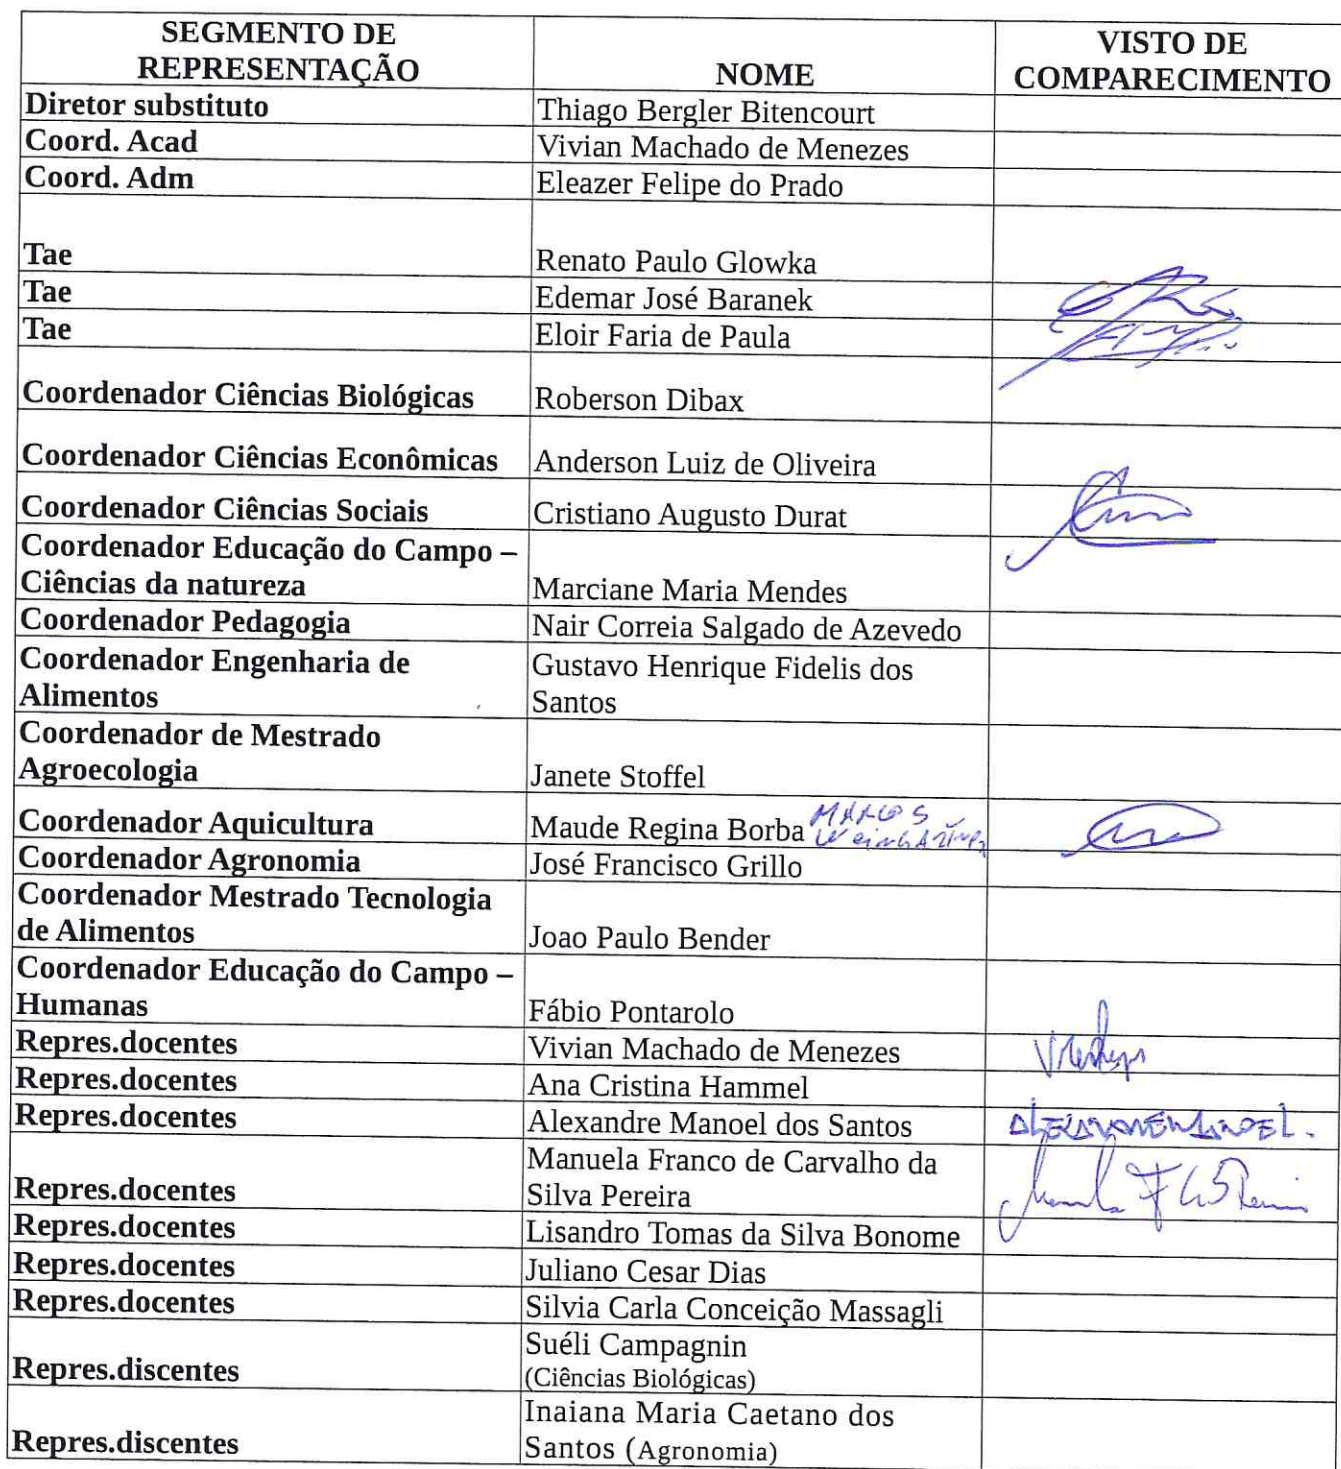 SEGMENTO DE
REPRESENTAÇÃO
NOME
VISTO DE
COMPARECIMENTO
Diretor substituto Thiago Bergler Bitencourt
Coord. Acad Vivian Machado de Menezes
Coord. Adm Eleazer Felipe do Prado
Tae Renato Paulo Glowka
Tae Edemar José Baranek
Tae Eloir Faria de Paula
Coordenador Ciências Biológicas Roberson Dibax
Coordenador Ciências Econômicas Anderson Luiz de Oliveira
Coordenador Ciências Sociais Cristiano Augusto Durat
Coordenador Educação do Campo –
Ciências da natureza Marciane Maria Mendes
Coordenador Pedagogia Nair Correia Salgado de Azevedo
Coordenador Engenharia de
Alimentos
Gustavo Henrique Fidelis dos
Santos
Coordenador de Mestrado
Agroecologia Janete Stoffel
Coordenador Aquicultura Maude Regina Borba MARCOS
Coordenador Agronomia José Francisco Grillo
Coordenador Mestrado Tecnologia
de Alimentos Joao Paulo Bender
Coordenador Educação do Campo –
Humanas Fábio Pontarolo
Repres.docentes Vivian Machado de Menezes
Repres.docentes Ana Cristina Hammel
Repres.docentes Alexandre Manoel dos Santos
Repres.docentes
Manuela Franco de Carvalho da
Silva Pereira
Repres.docentes Lisandro Tomas da Silva Bonome
Repres.docentes Juliano Cesar Dias
Repres.docentes Silvia Carla Conceição Massagli
Repres.discentes
Suéli Campagnin
(Ciências Biológicas)
Repres.discentes
Inaiana Maria Caetano dos
Santos (Agronomia)